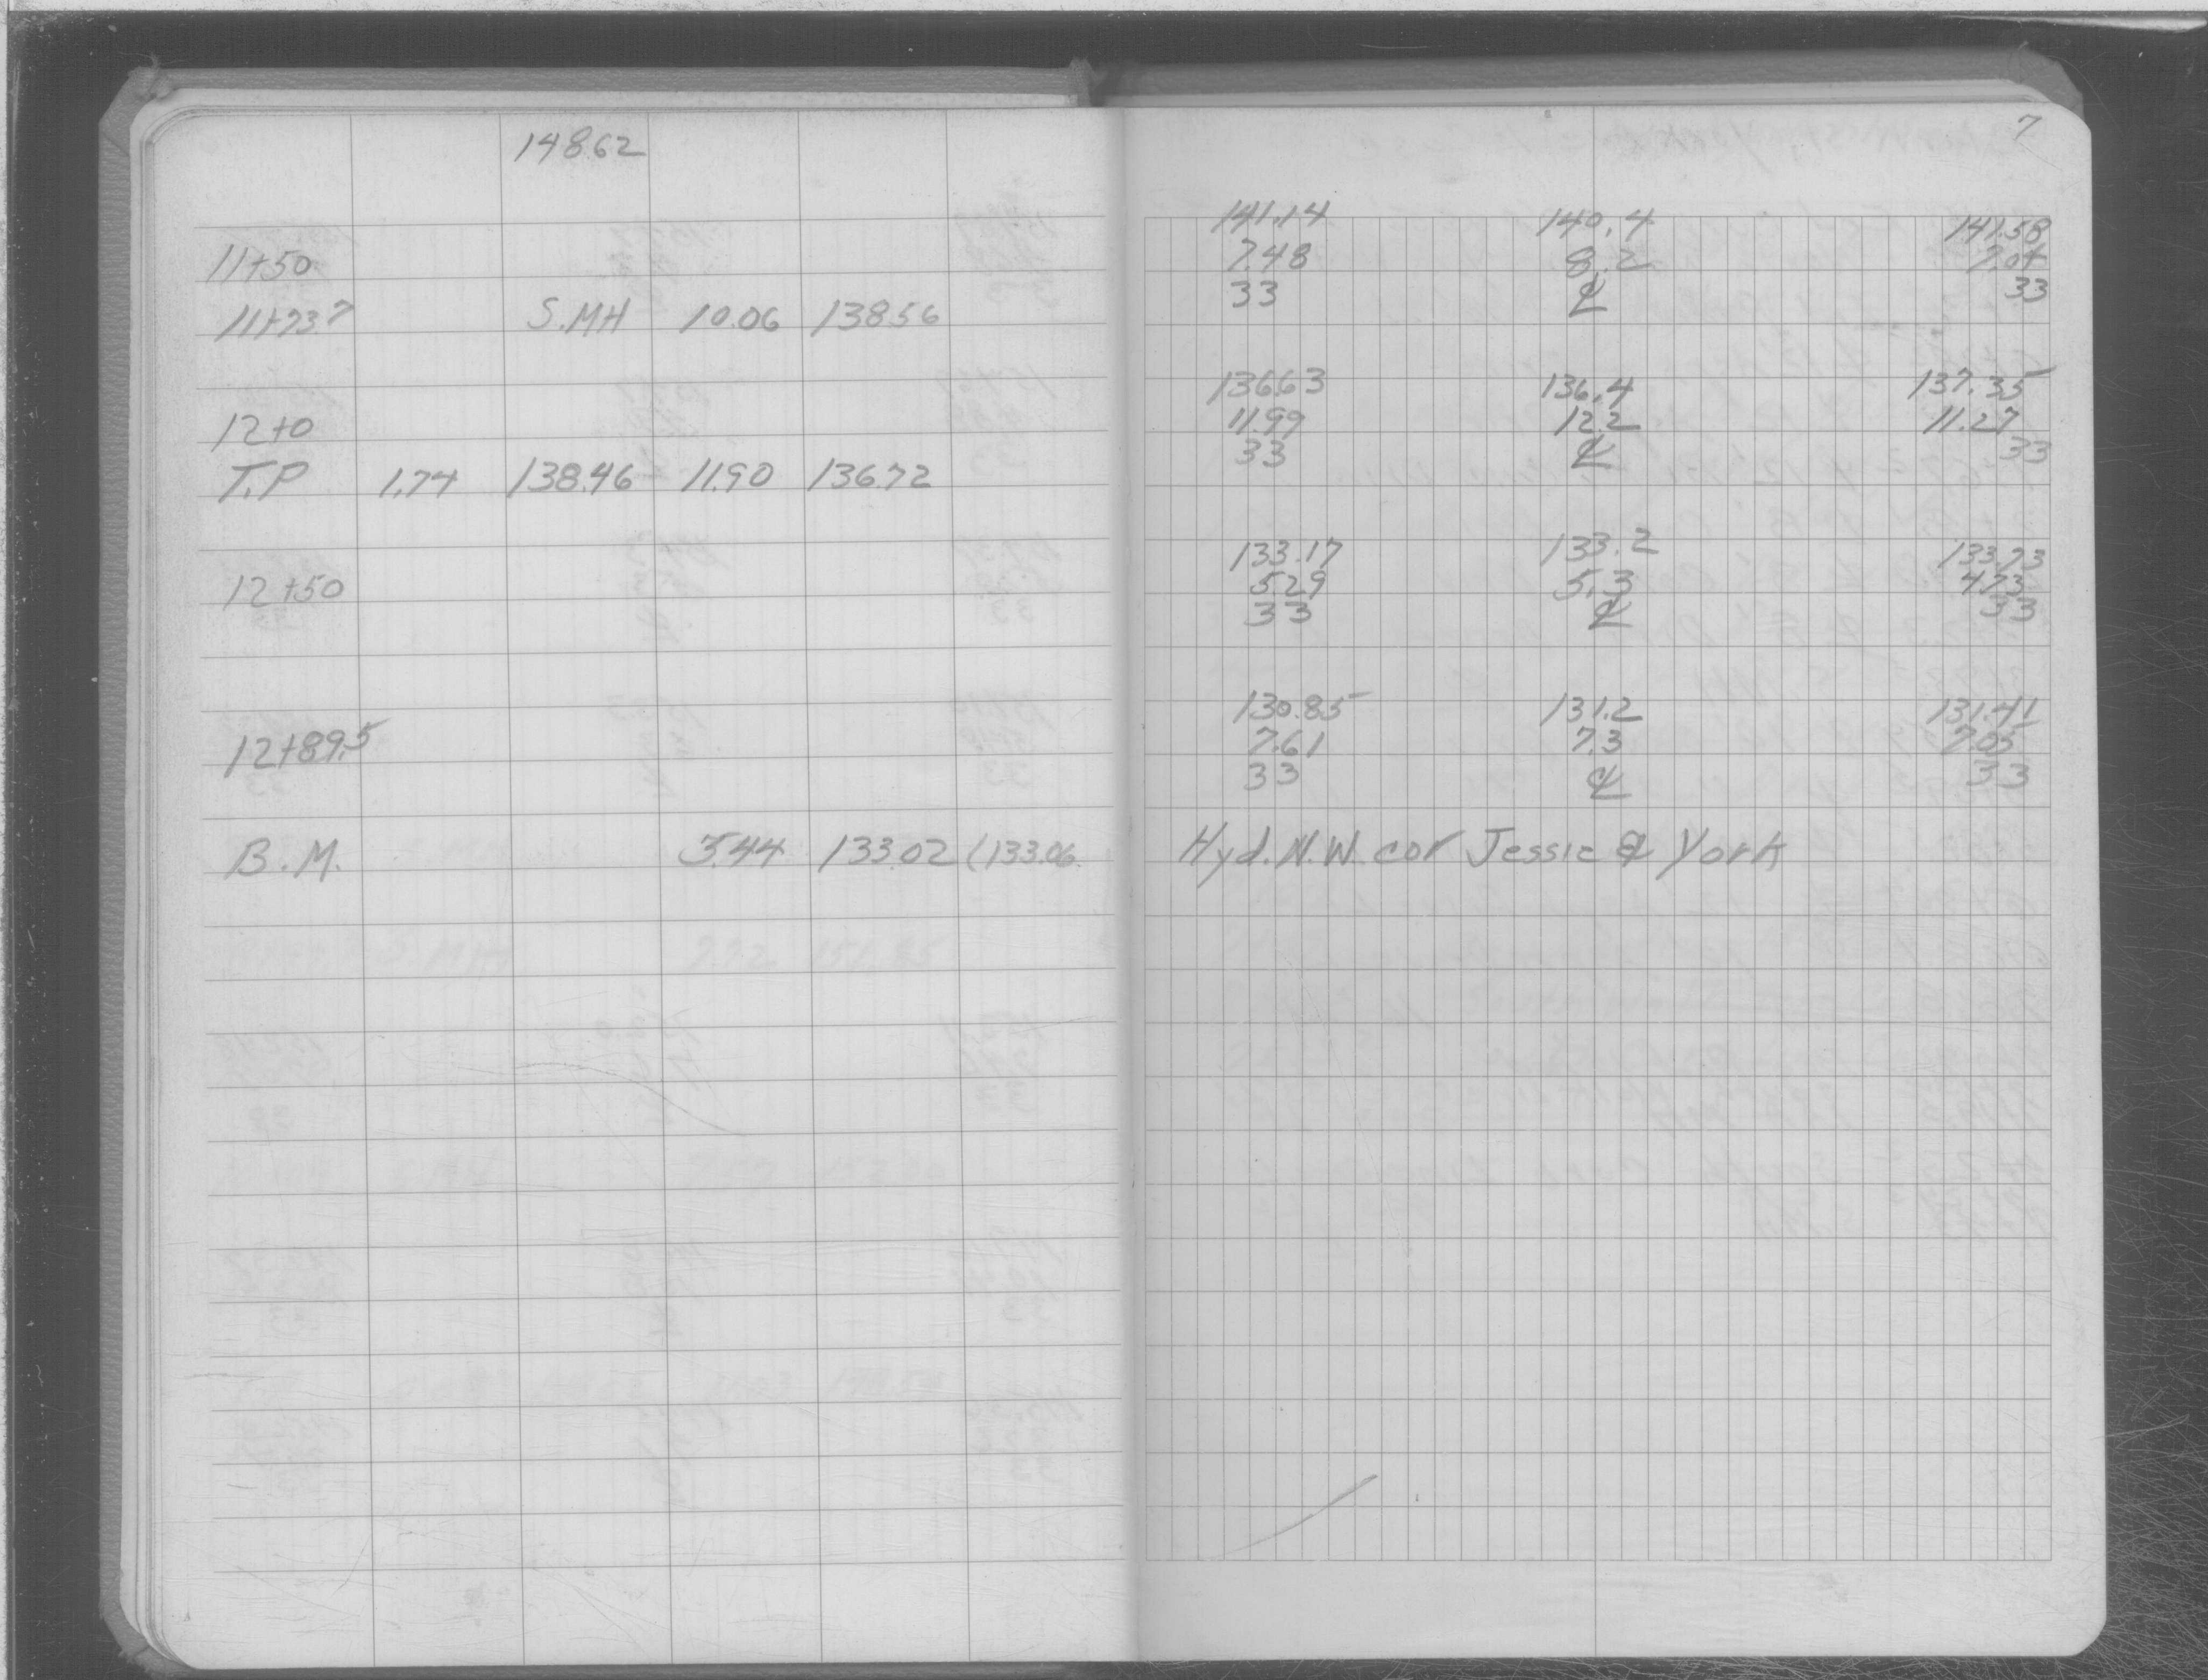 148.62
7
141.14 140.4 141.58
11+50 7.48 8.2 7.04
33 ℄ 33
11+73.7 S.MH 10.06 138.56
136.63 136.4 137.35
12+0 11.99 12.2 11.27
33 ℄ 33
T.P 1.74 138.46 11.90 136.72
133.17 133.2 133.73
12+50 5.29 5.3 4.73
33 ℄ 33
130.85 131.2 131.41
12+89.5 7.61 7.3 7.05
33 ℄ 33
B.M. 5.44 133.02 (133.06 Hyd. N.W. cor Jessie & York